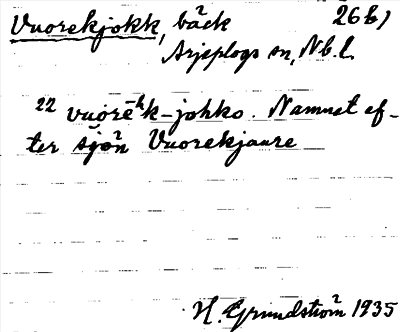 Vuorekjokk, bäck 26 b)
Arjeplogs sn, Nb. l.
22 vuorēʰk-johko. Namnet ef-
ter sjön Vuorekjaure
H. Grundström 1935